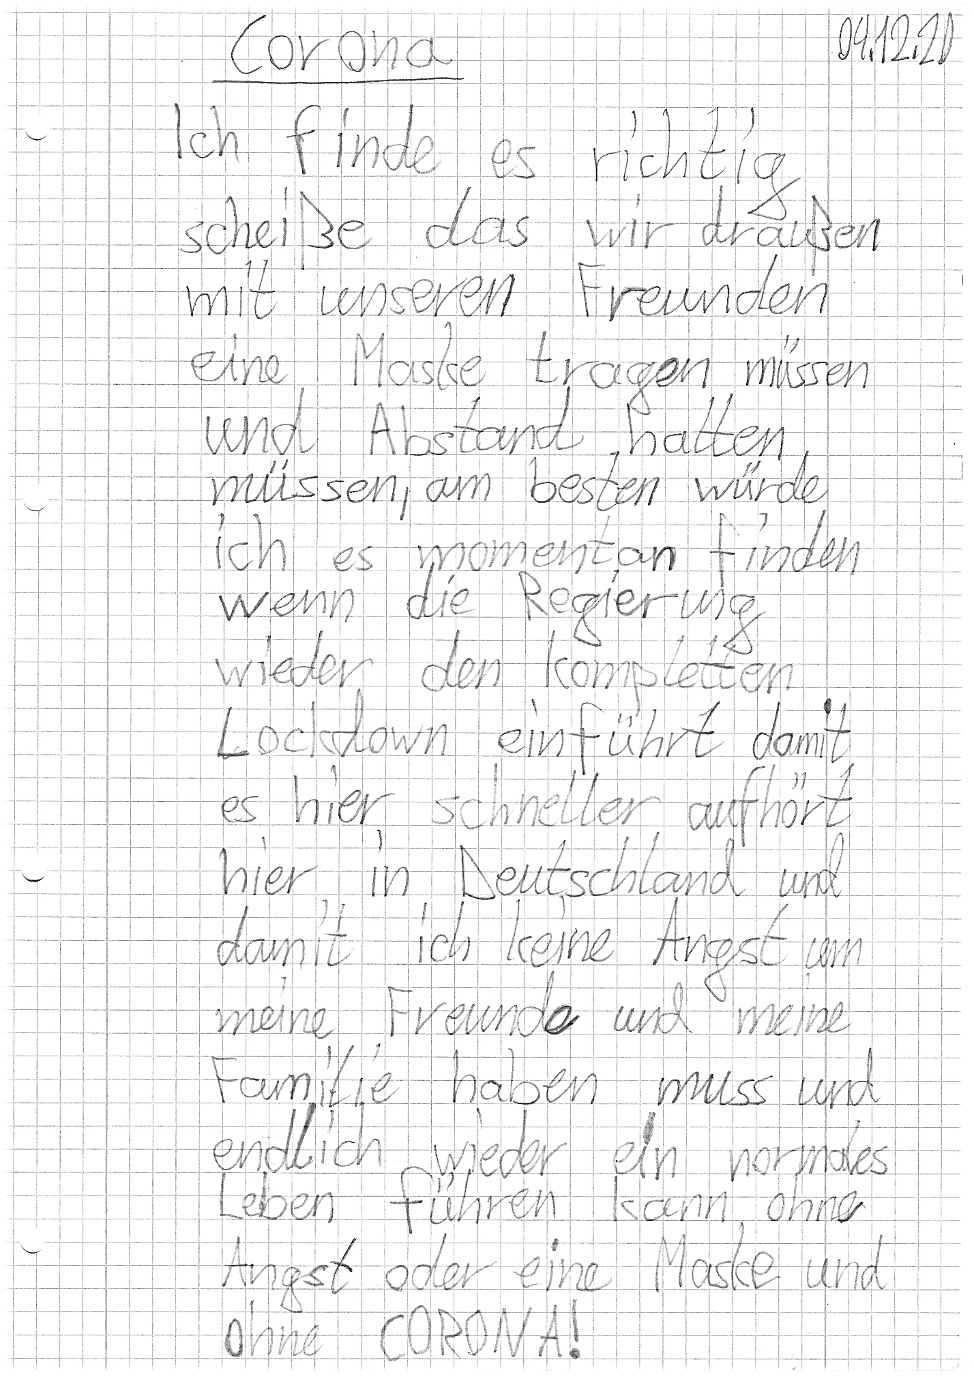 Corona 09.12.20
Ich finde es richtig
scheiße das wir draußen
mit unseren Freunden
eine Maske tragen müssen
und Abstand halten
müssen, am besten würde
ich es momentan finden
wenn die Regierung
wieder den kompletten
Lockdown einführt damit
es hier schneller aufhört
hier in Deutschland und
damit ich keine Angst um
meine Freunde und meine
Familie haben muss und
endlich wieder ein normales
Leben führen kann ohne
Angst oder eine Maske und
ohne CORONA!